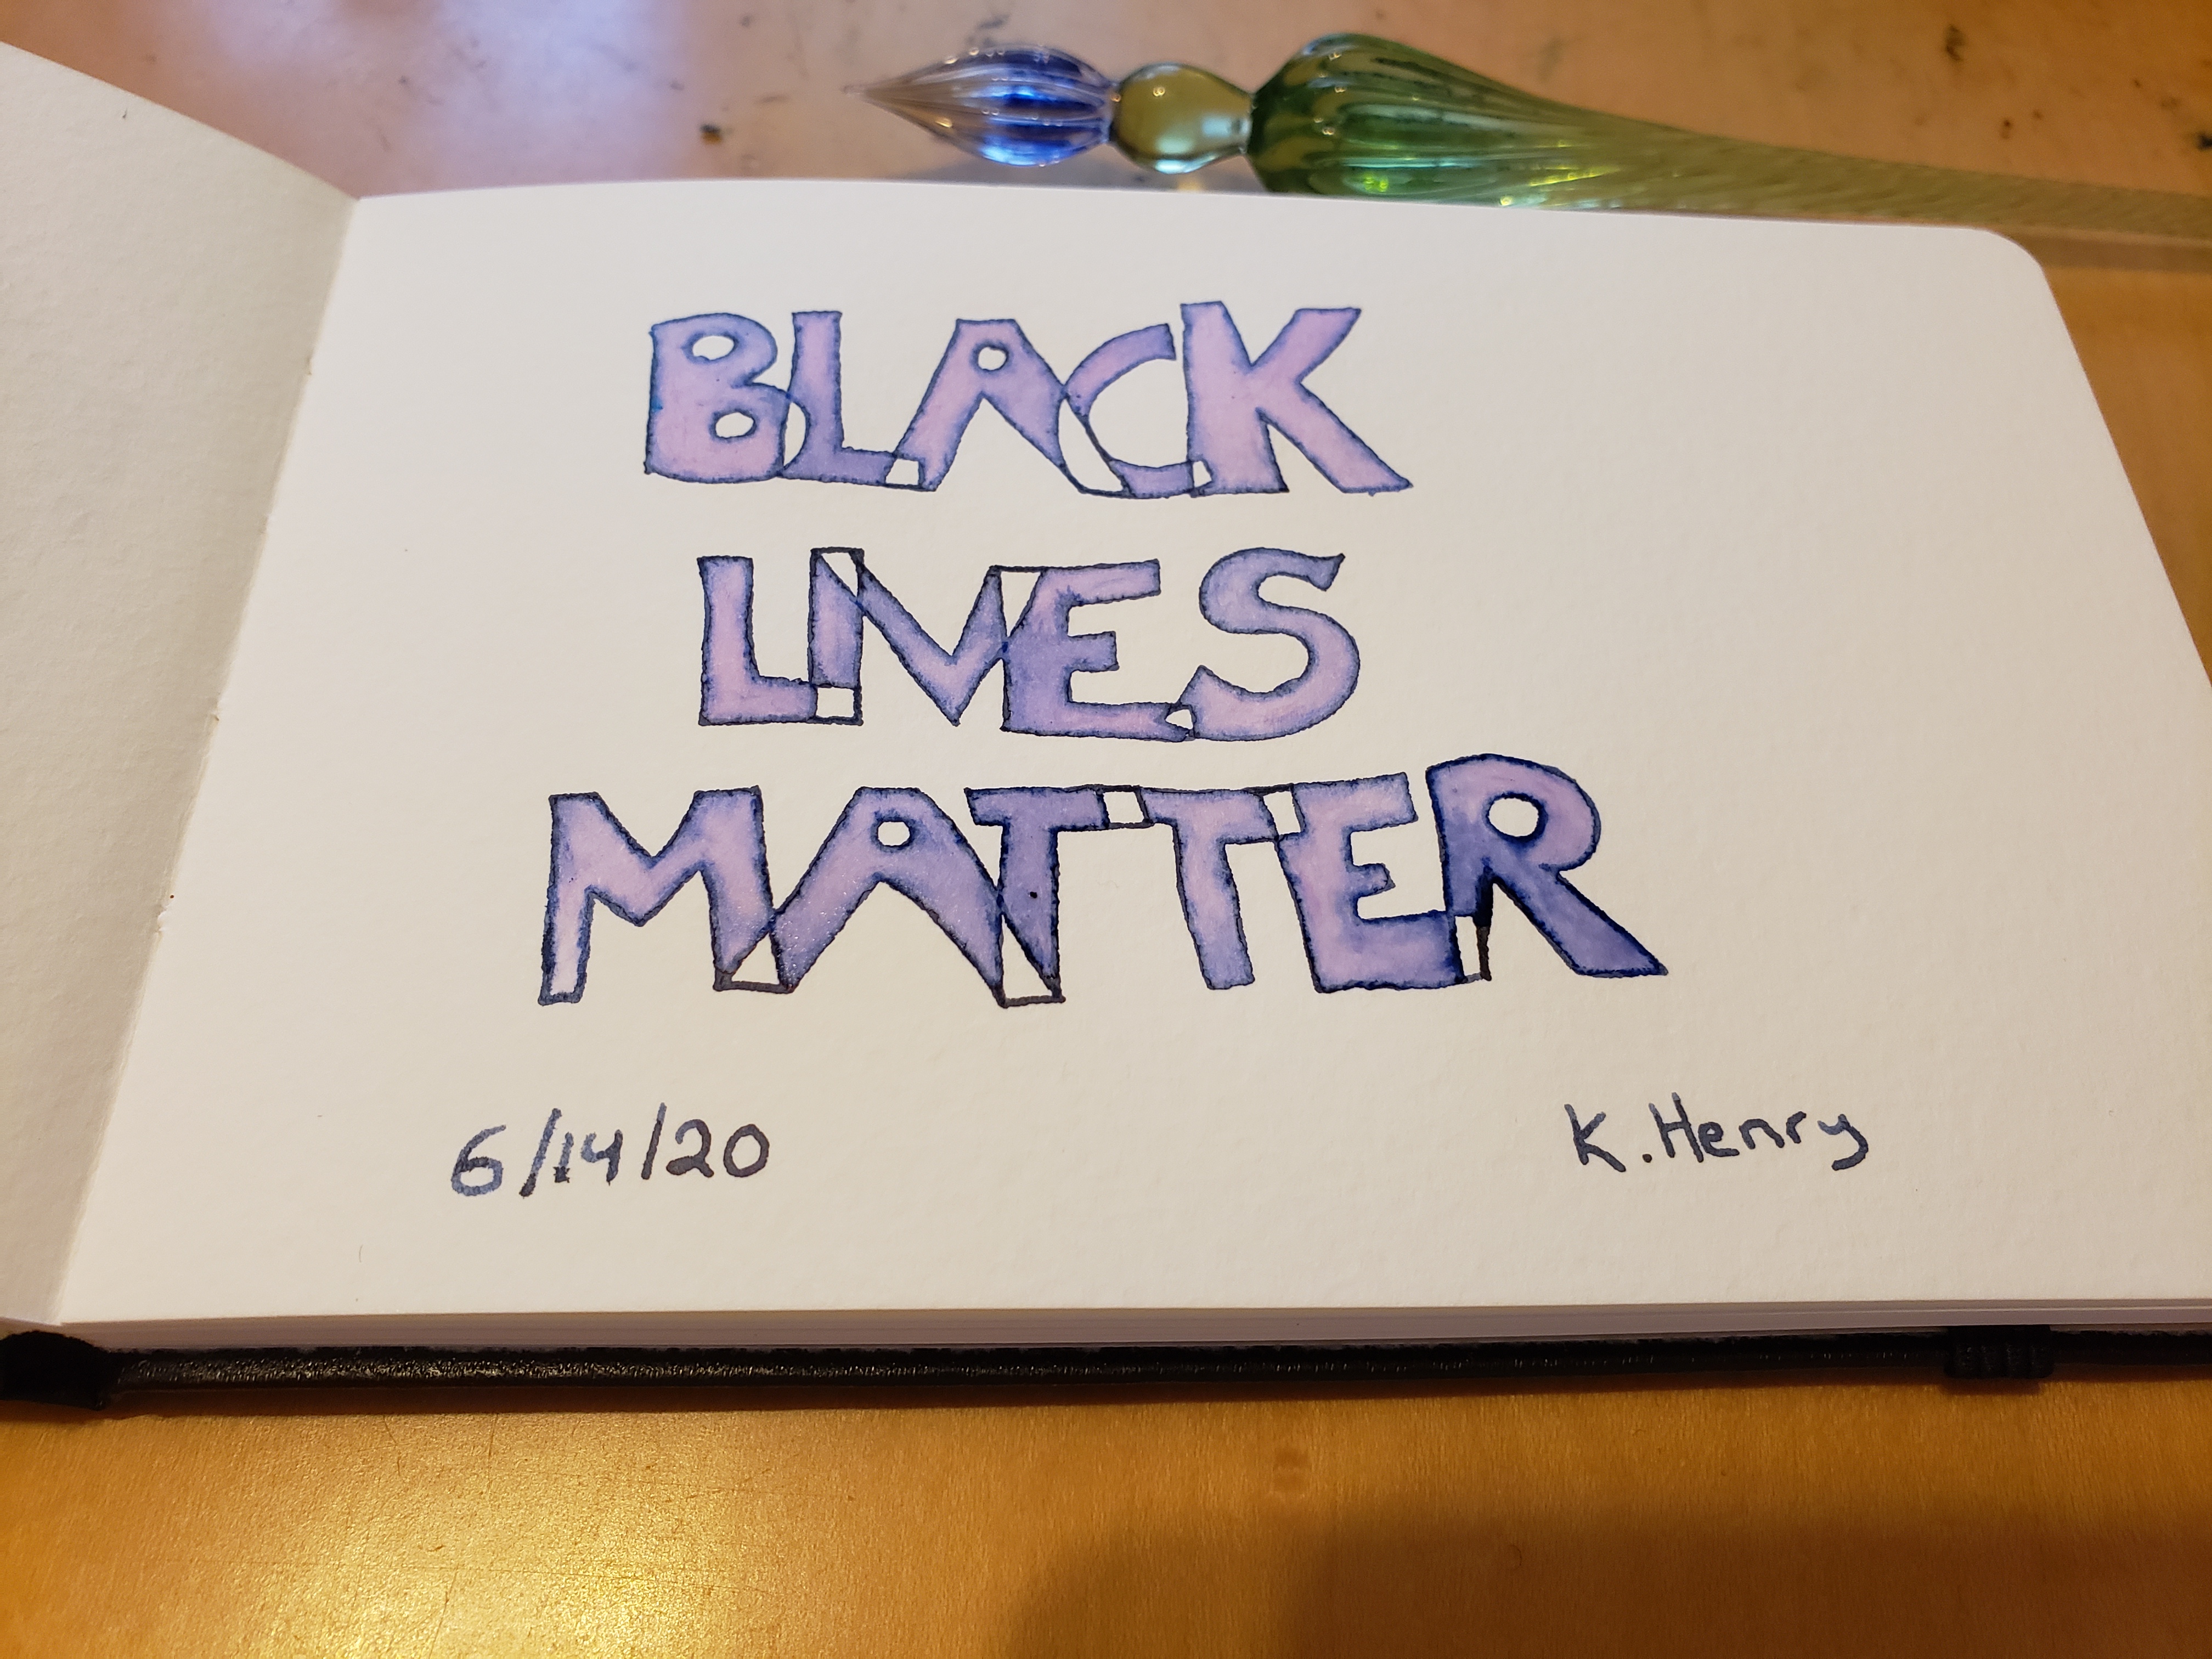 BLACK
LIVES
MATTER
6/14/20 K.Henry